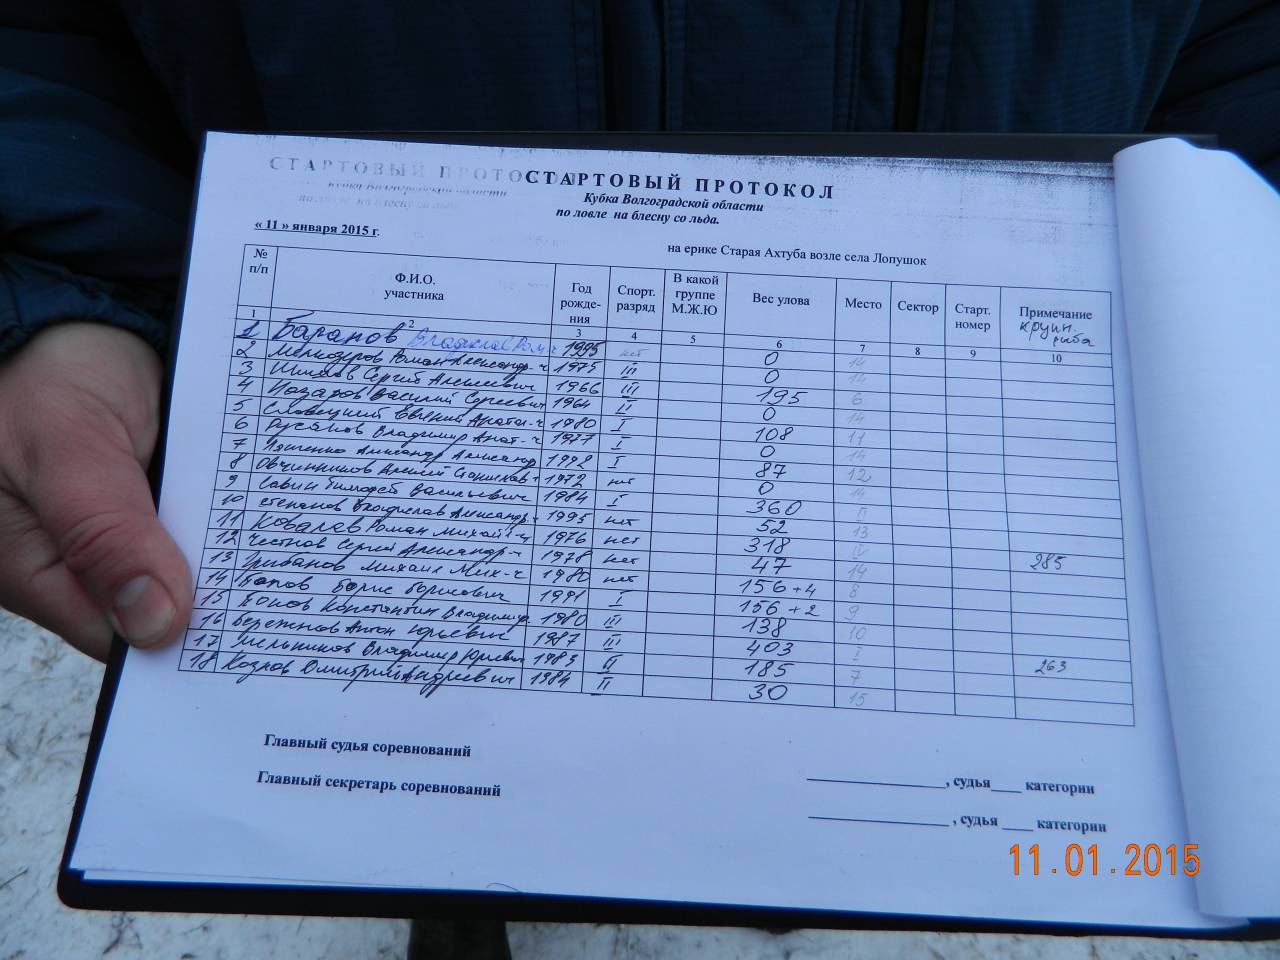 СТАРТОВЫЙ ПРОТОКОЛ
Кубка Волгоградской области
по ловле на блесну со льда.
« 11 » января 2015 г.
на ерике Старая Ахтуба возле села Лопушок
№ п/п Ф.И.О. участника Год рожде- ния Спорт. разряд В какой группе М.Ж.Ю Вес улова Место Сектор Старт. номер Примечание крупн. рыба
1 2 3 4 5 6 7 8 9 10
1 Баранов Владислав 1995 нет 0 14
2 Роман 1975 III 0 14
3 Сергей Алексеевич 1966 III 195 6
4 Назаров Василий Сергеевич 1964 II 0 14
5 Евгений 1980 I 108 11
6 Русанов Владимир Анат-ч 1977 I 0 14
7 Александр 1992 I 87 12
8 Овчинников Алексей 1972 нет 0 14
9 Савин Тимофей Васильевич 1984 I 360 II
10 Степанов Владислав 1995 нет 52 13
11 Ковалев Роман 1976 нет 318 IV
12 Честнов Сергей Александр-ч 1978 нет 47 14 285
13 Грибанов Михаил Мих-ч 1980 нет 156+4 8
14 Попов Борис Борисович 1991 I 156+2 9
15 Константин 1980 III 138 10
16 Бережнов Антон Юрьевич 1987 III 403 I 263
17 Мельников Владимир Юрьевич 1983 II 185 7
18 Козлов Дмитрий Андреевич 1984 II 30 15
Главный судья соревнований
_______________, судья____ категории
Главный секретарь соревнований
_______________ , судья ____ категории
11.01.2015